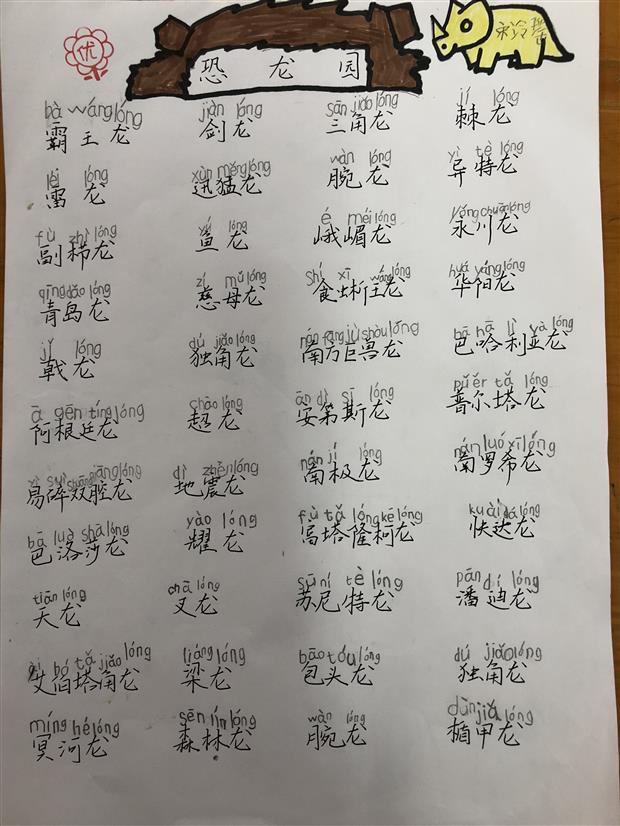 优
恐龙园
bà wáng lóng jiàn lóng sān jiǎo lóng jí lóng
霸王龙 剑龙 三角龙 棘龙
léi lóng xùn měng lóng wàn lóng yì tè lóng
雷龙 迅猛龙 腕龙 异特龙
fù zhì lóng yú lóng é méi lóng yǒng chuān lóng
副栉龙 鱼龙 峨嵋龙 永川龙
qīng dǎo lóng cí mǔ lóng shí xī wáng lóng huá yáng lóng
青岛龙 慈母龙 食蜥王龙 华阳龙
jǐ lóng dú jiǎo lóng nán fāng jù shòu lóng bā hā lì yà lóng
戟龙 独角龙 南方巨兽龙 巴哈利亚龙
ā gēn tíng lóng chāo lóng ān dì sī lóng pǔ ěr tǎ lóng
阿根廷龙 超龙 安第斯龙 普尔塔龙
yì suì shuāng qiāng lóng dì zhèn lóng nán jí lóng nán luó xī lóng
易碎双腔龙 地震龙 南极龙 南罗希龙
bā luò shā lóng yào lóng fù tǎ lóng kē lóng kuài dá lóng
巴洛莎龙 耀龙 富塔隆柯龙 快达龙
tiān lóng chā lóng sū ní tè lóng pān dí lóng
天龙 叉龙 苏尼特龙 潘迪龙
ài bó tǎ jiǎo lóng liáng lóng bāo tóu lóng dú jiǎo lóng
艾伯塔角龙 梁龙 包头龙 独角龙
míng hé lóng sēn lín lóng wàn lóng dùn jiǎ lóng
冥河龙 森林龙 腕龙 楯甲龙